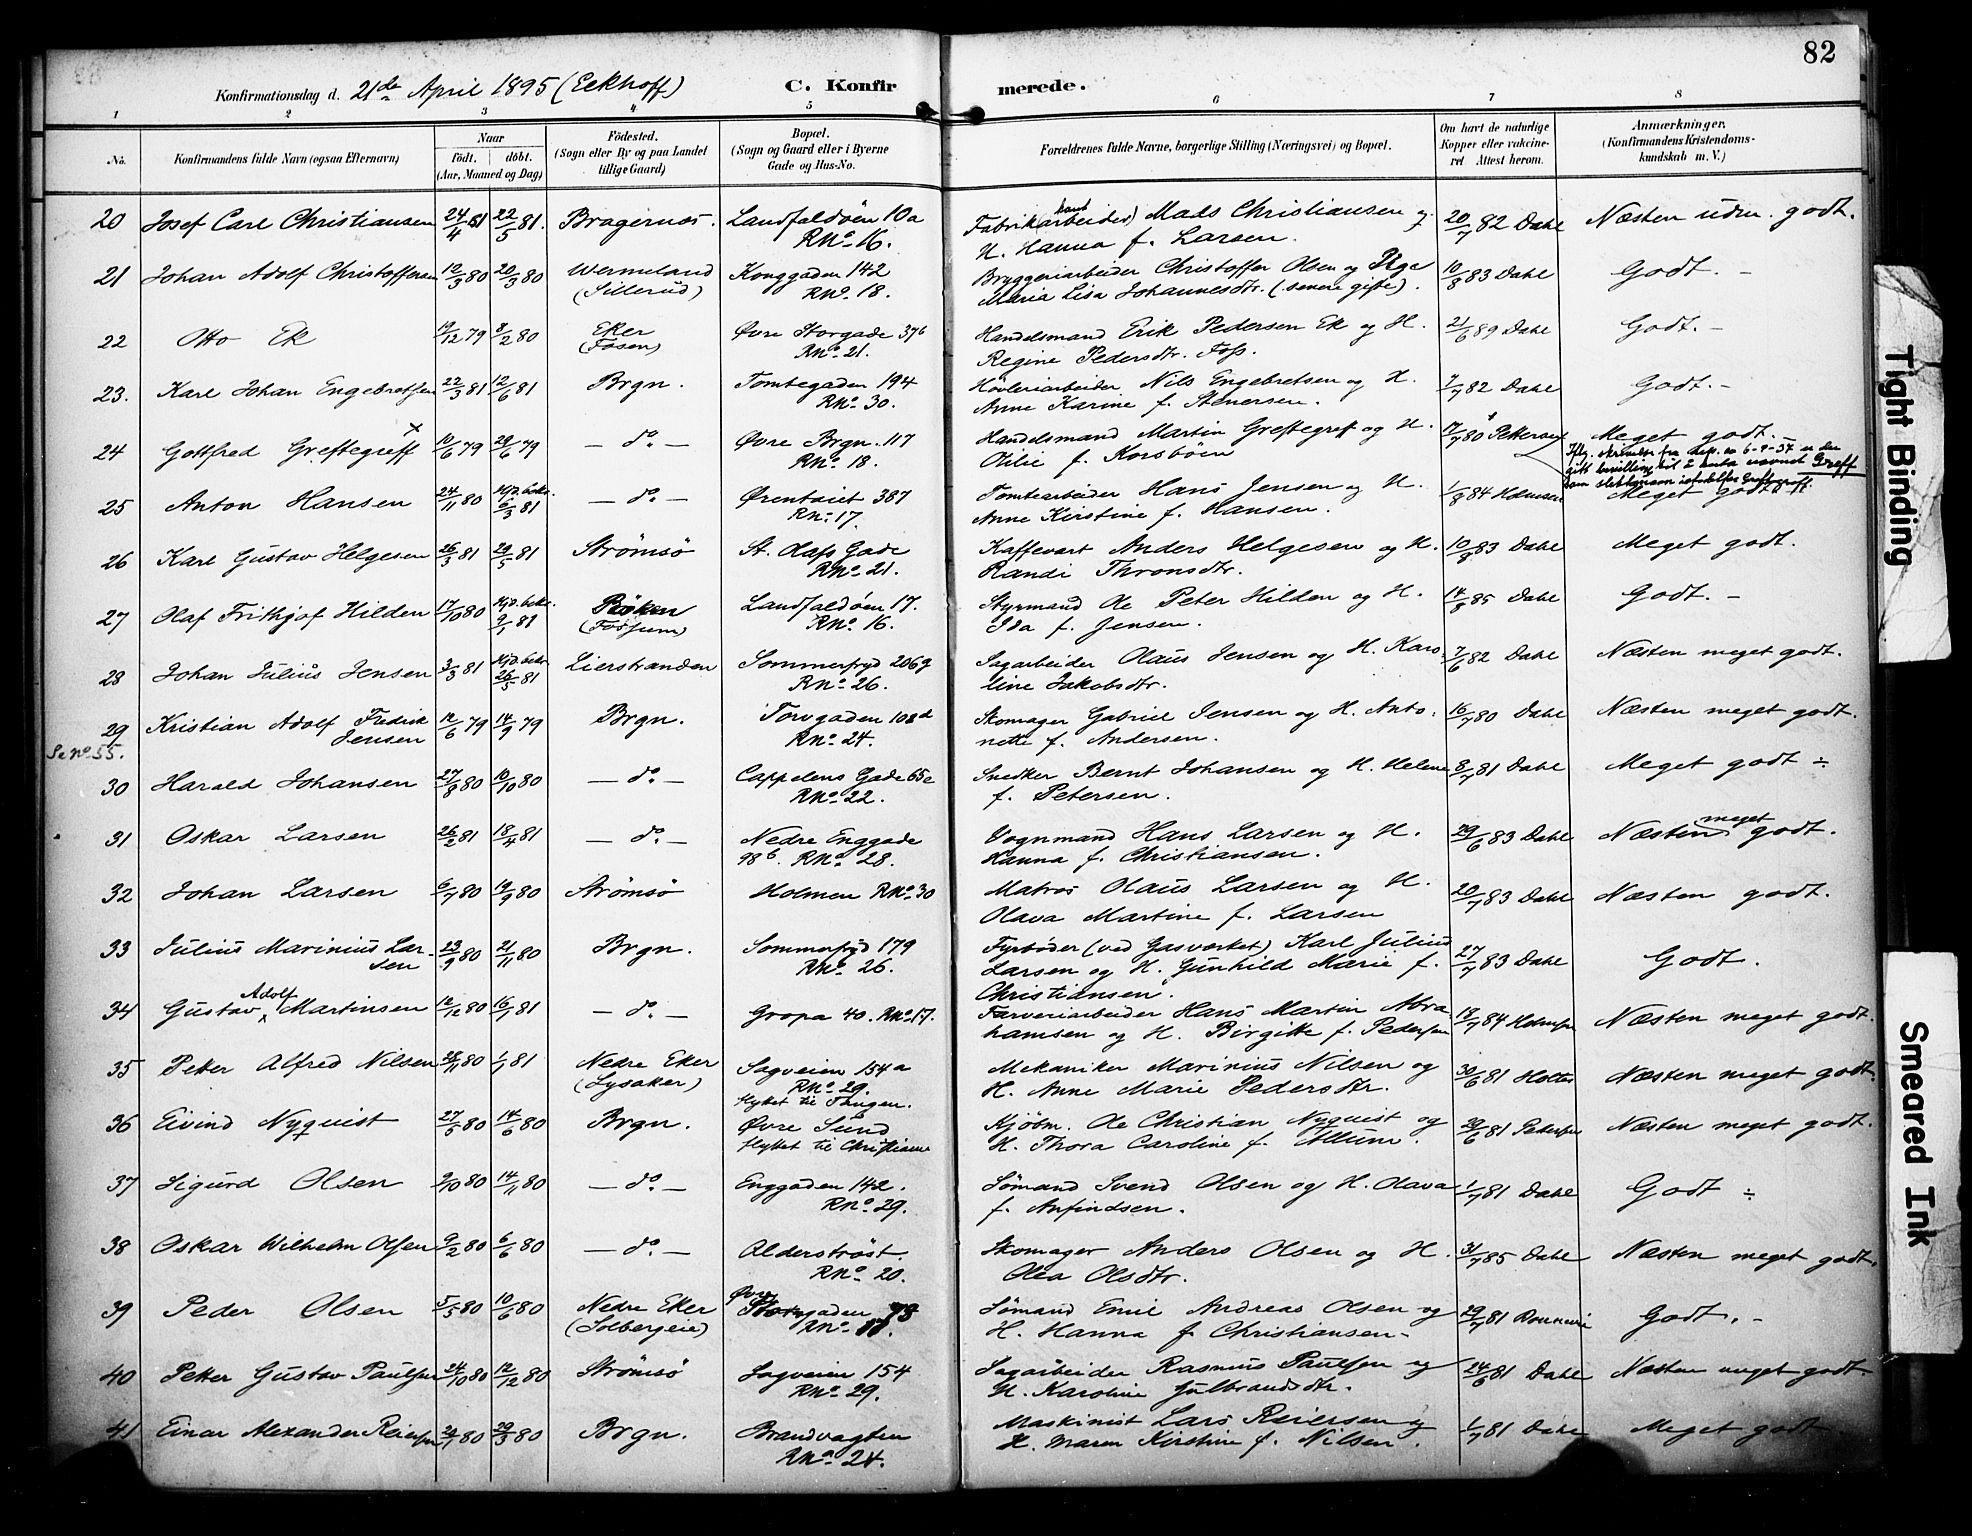 82
Konfirmationsdag d. 21de April 1895 (Eckhoff) C. Konfirmerede.
1 2 3 4 5 6 7 8
No. Konfirmandens fulde Navn (ogsaa Efternavn) Naar født. døbt. (Aar, Maaned og Dag) Fødested. (Sogn eller By og paa Landet tillige Gaard) Bopæl. (Sogn og Gaard eller i Byerne Gade og Hus-No. Forældrenes fulde Navne, borgerlige Stilling (Næringsvei) og Bopæl. Om havt de naturlige Kopper eller vakcineret Attest herom. Anmærkninger. (Konfirmandens Kristendomskundskab m. V.)
20 Josef Carl Christiansen 24/4 81 22/5 81. Bragernæs. Landfaldöen 10a RNo. 16. Fabrikarbeider) Mads Christiansen og H. Hanna f. Larsen. 20/7 82 Dahl Næsten udm. godt.
21 Johan Adolf Christoffersen 12/3 80 20/3 80 Wermeland (Sillerud) Konggaden 142 RNo. 18. Bryggeriarbeider Christoffer Olsen og Pige Maria Lisa Johannesdtr. (senere gifte). 10/8 83 Dahl Godt. –
22 Otto Ek 19/12 79 8/2 80 Eker (Fosen) Øvre Storgade 37b RNo. 21. Handelsmand Erik Pedersen Ek og H. Regine Pedersdtr. Foss. 21/6 89 Dahl Godt. –
23. Karl Johan Engebretsen 22/3 81 12/6 81 Brgn. Tomtegaden 194 RNo. 30. Høvleriarbeider Nils Engebretsen og H. Anne Karine f. Stenersen. 7/7 82 Dahl Godt. –
24 Gottfred Greftegreff x 10/6 79 29/6 79 — do. — Øvre Brgn. 117 RNo. 18. Handelsmand Martin Greftegreff og H. Otilie f. Korsböen 17/7 80 Meget godt.
Greff
25 Anton Hansen 24/11 80 Hjd. bekr. 6/3 81 — do. — Ørentoiet 387 RNo. 17. Tomtearbeider Hans Jensen og H. Anne Kirstine f. Hansen. 1/8 84 Meget godt.
26 Karl Gustav Helgesen 26/3 81 29/5 81 Strömsö St. Olafs Gade RNo. 21. Kaffevært Anders Helgesen og H. Randi Thronsdtr. 10/8 83 Dahl Meget godt.
27 Olaf Frithjof Hilden 17/10 80 Hjd. bekr. 9/1 81 Röken (Fossum) Landfaldöen 17. RNo. 16. Styrmand Ole Peter Hilden og H. Ida f. Jensen. 14/8 85 Dahl Godt. –
28 Johan Julius Jensen 3/3 81 Hjd. bekr. 26/5 81 Lierstranden Sommerfryd 206g RNo. 26. Sagarbeider Olaus Jensen og H. Karoline Jakobsdtr. 7/6 82 Dahl Næsten meget godt.
29 Kristian Adolf Fredrik Jensen 12/6 79 14/9 79 Brgn. Torvgaden 108d RNo. 24. Skomager Gabriel Jensen og H. Antonette f. Andersen. 16/7 80 Dahl Næsten meget godt.
Se no 55.
30 Harald Johansen 27/8 80 10/10 80 — do. — Cappelens Gade 65e RNo. 22. Snedker Bernt Johansen og H. Helene f. Petersen. 8/7 81 Dahl Meget godt ÷
31 Oskar Larsen 26/2 81 18/4 81 — do. — Nedre Enggade 98b. RNo. 28. Vognmand Hans Larsen og H. Hanna f. Christiansen. 29/6 83 Dahl Næsten meget godt.
32 Johan Larsen 6/7 80 19/9 80 Strömsö Holmen RNo. 30 Matros Olaus Larsen og H. Olava Martine f. Larsen 20/7 83 Dahl Næsten godt.
33 Julius Marinius Larsen 23/9 80 21/11 80 Brgn. Sommerfryd 179 RNo. 26. Fyrböder (ved Gasværket) Karl Julius Larsen og H. Gunhild Marie f. Christiansen. 27/7 83 Dahl Godt.
34 Gustav Adolf Martinsen 12/12 80 16/1 81 — do. — Gropa 40. RNo. 17. Farveriarbeider Hans Martin Abrahamsen og H. Birgitte f. Pedersen 18/7 84 Næsten meget godt.
35 Petter Alfred Nilsen 28/11 80 1/1 81 Nedre Eker (Lysaker) Sagveien 154a RNo. 29. flyttet til Tangen. Mekaniker Marinius Nilsen og H. Anne Marie Pedersdtr. 30/6 81 Holter Næsten meget godt.
36 Eivind Nyquist 27/5 80 14/6 80 Brgn. Øvre Sund flyttet til Christiania Kjöbm. Ole Christian Nyquist og H. Thora Caroline f. Allum. 29/6 81 Næsten meget godt.
37 Sigurd Olsen 9/10 80 14/11 80 — do. — Enggaden 142. RNo. 29. Sömand Svend Olsen og H. Olava f. Anfindsen. 1/7 81 Dahl Godt ÷
38 Oskar Wilhelm Olsen 9/2 80 6/6 80 — do. — Alderströst. RNo. 20. Skomager Anders Olsen og H. Olea Olsdtr. 31/7 85 Dahl Næsten meget godt.
39 Peder Olsen 5/5 80 10/6 80 Nedre Eker (Solbergeie) Øvre Storgaden 73 RNo. 17. Sömand Emil Andreas Olsen og H. Hanna f. Christiansen. 29/7 81 Godt. –
40 Petter Gustav Paulsen 24/10 80 12/12 80 Strömsö Sagveien 154 RNo. 29. Sagarbeider Rasmus Paulsen og H. Karoline Gulbrandsdtr. 24/6 81 Dahl Næsten meget godt.
41 Einar Alexander Reiersen 20/1 80 29/3 80 Brgn. Brandvagten RNo. 24. Maskinist Lars Reiersen og H. Maren Kirstine f. Nilsen. 1/7 81 Dahl Meget godt
Tight Binding
Smeared Ink